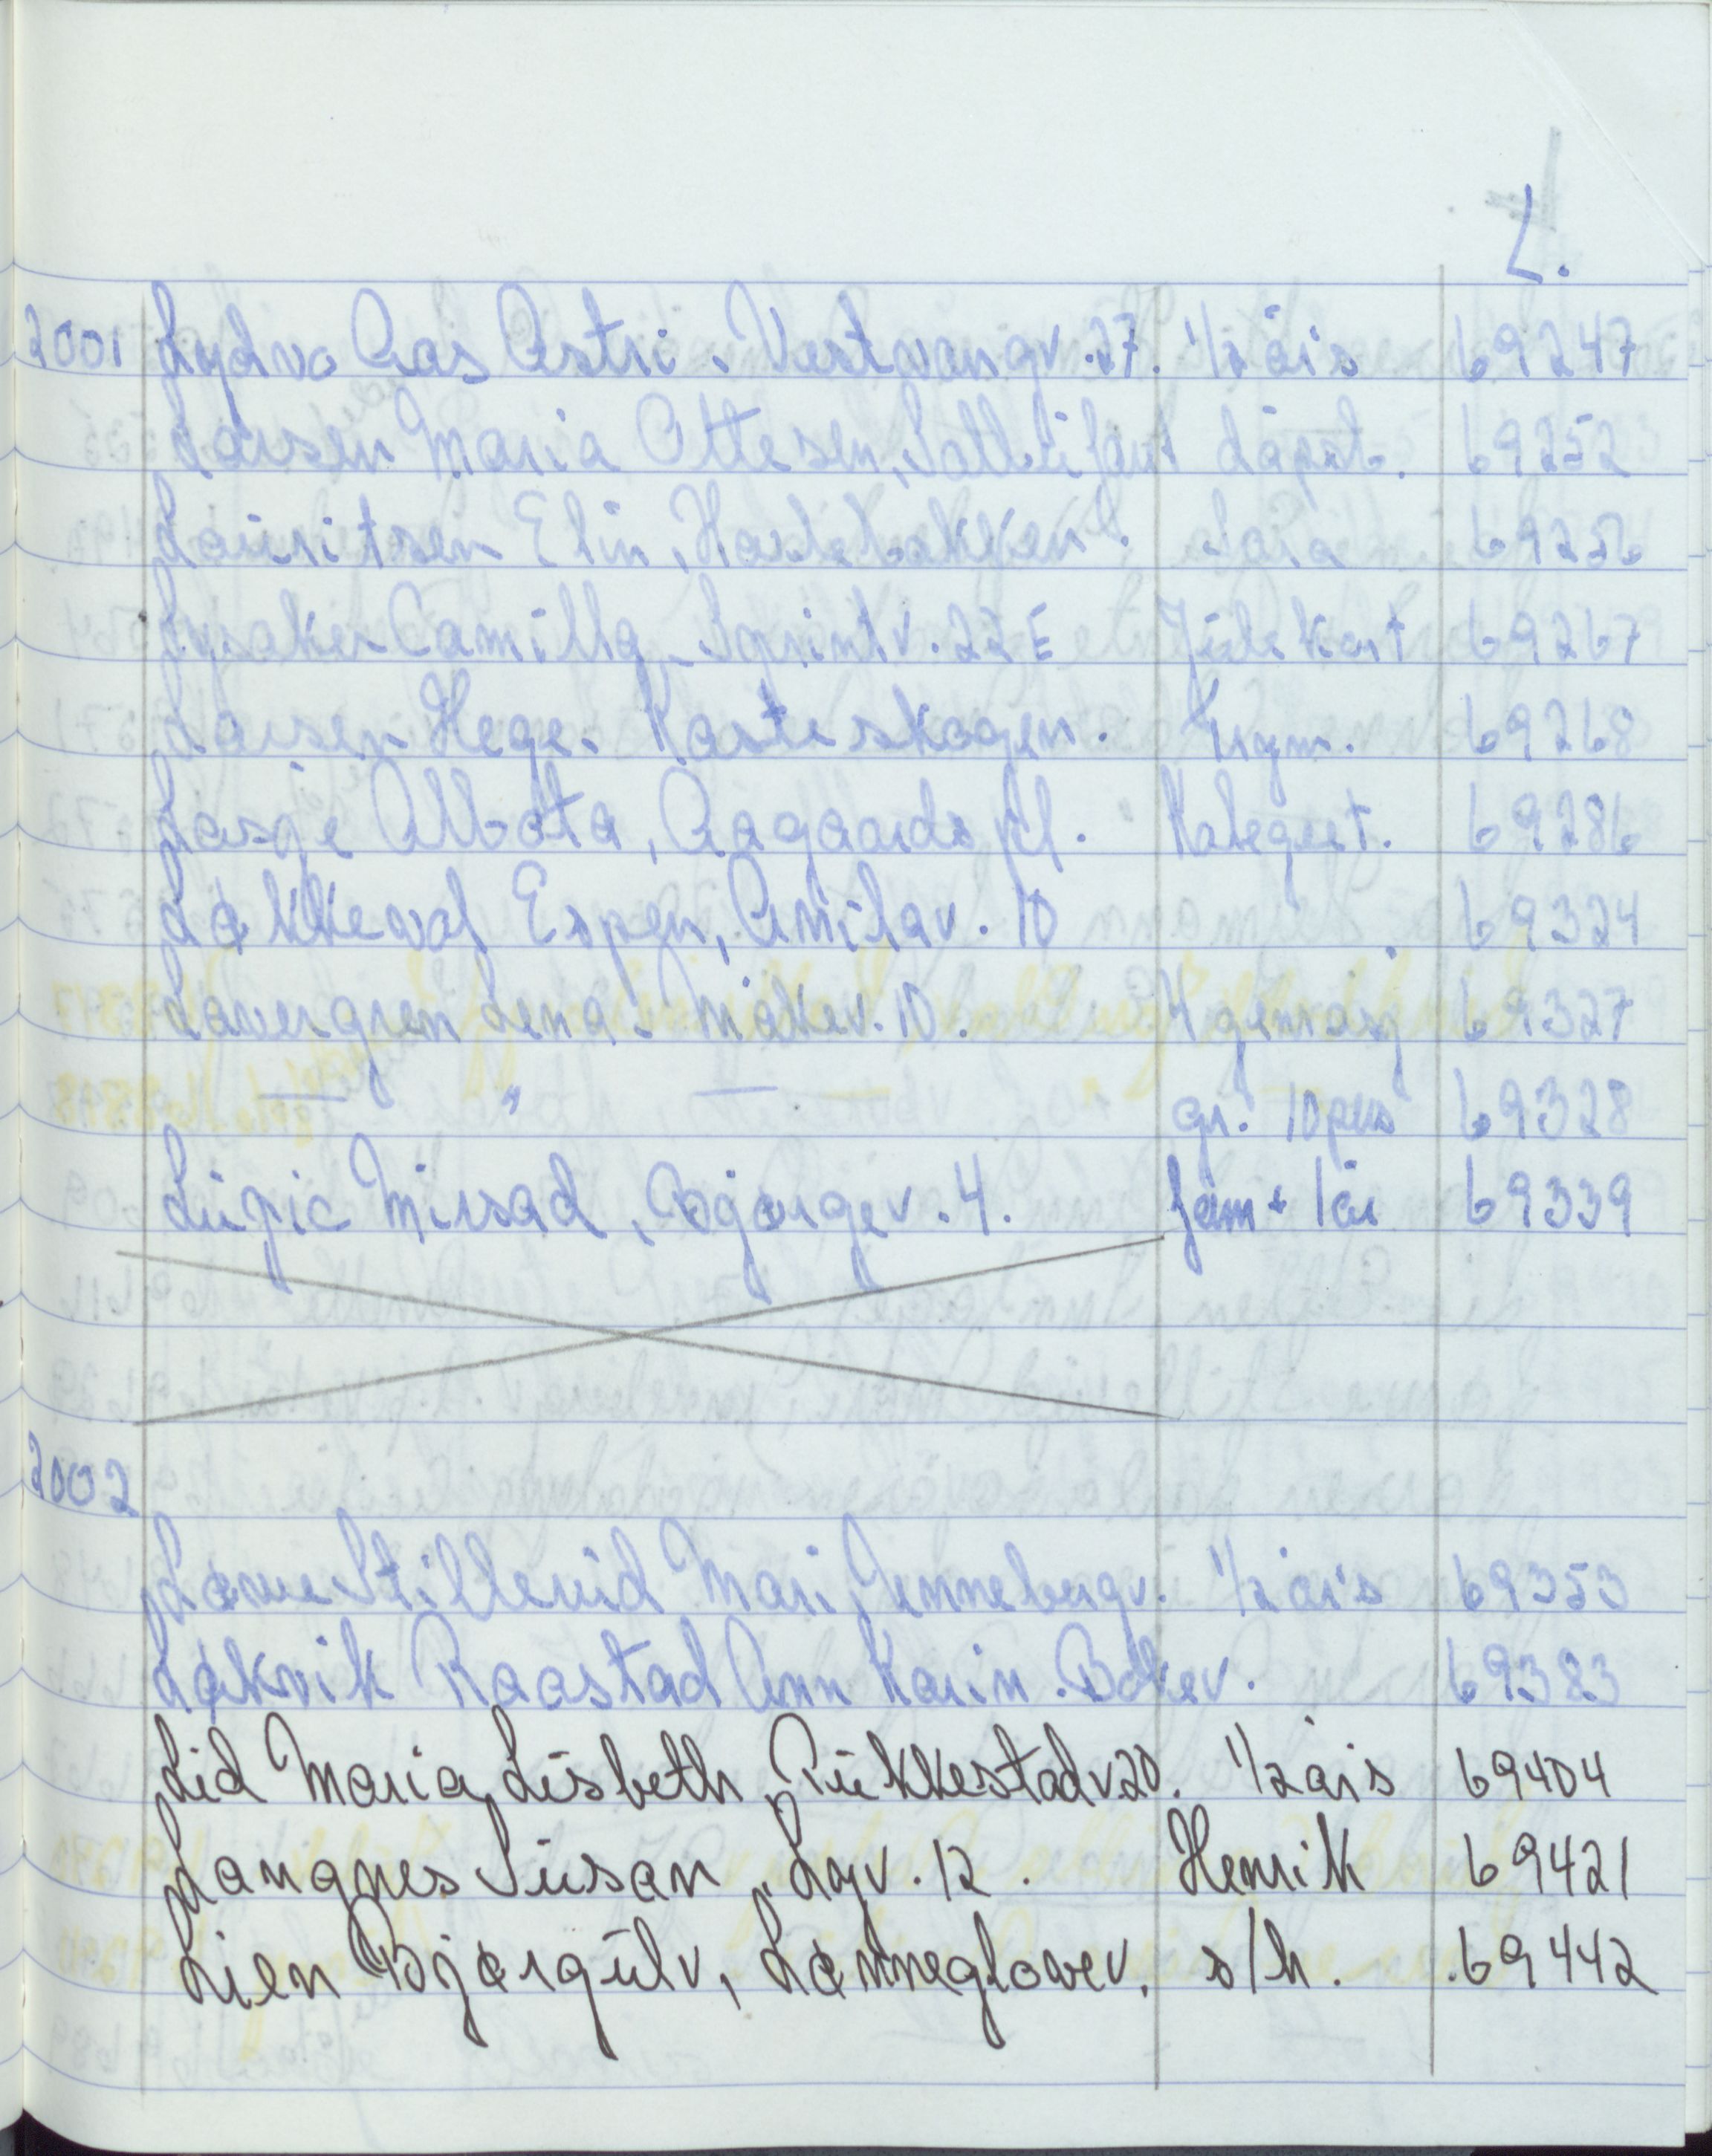 L.
2001 Lydvo Aas Astri. Vestvangv. 27. 1/2 års 69247
Larsen Maria Ottesen, dåpsb. 69252
Lauritsen Elin, Haslebakken. 69256
Lysaker Camilla Sprintv. 22 E Julekort 69267
Larsen Hege. Rasteskogen. 69268
Albota, Aagaards pl. 69286
Løkkevol Espen, Anilav. 10 69324
Lavergren Lena. Måkev. 10. 69327
— " — gr. 10 pers 69328
Lüpic Mirsad, Bjørgev. 4. fam + 1 år 69339
2002
Løwe Stillerud Mari, Jennebergv. 1/2 års 69353
Løkvik Raastad Ann Karin. 69383
Lid Maria Lisbeth, Rukkestadv 20. 1/2 års 69404
Langnes Susan, Lyv. 12. Henrik 69421
Lien Bjørgulv, Lønneglovev. s/h. 69442